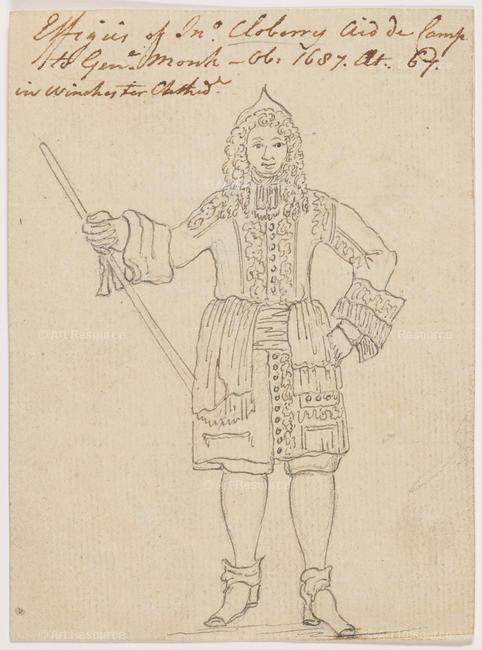 Effigies of Jnº. Cloberry Aid de Camp
to Genl. Monk – Ob: 1687. Æt. 67.
in Winchester Cathedl.
© Art Resource
© Art Resource
© Art Resource
© Art Resource
© Art Resource